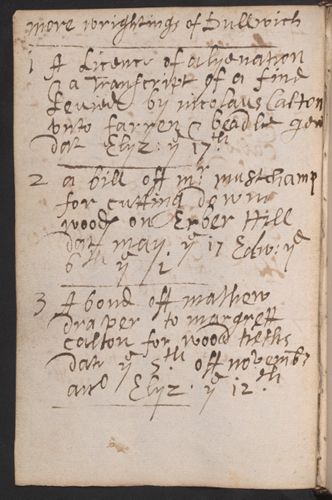 more wrightings of Dullwich
1 A Licence of alyenation
& a transcript of a fine
levied by nicolaus Calton
unto farren & beadle gen
dat Elyz: ye 17th
2 a bill off mr mustchamp
for cutting down
wood on Erber Hill
dat may ye 17 Edw: ye
6th ye 1
3 A bond off mathew
draper to margrett
Calton for wood tieths
dat ye 5th off novembr
and Elyz ye 12th